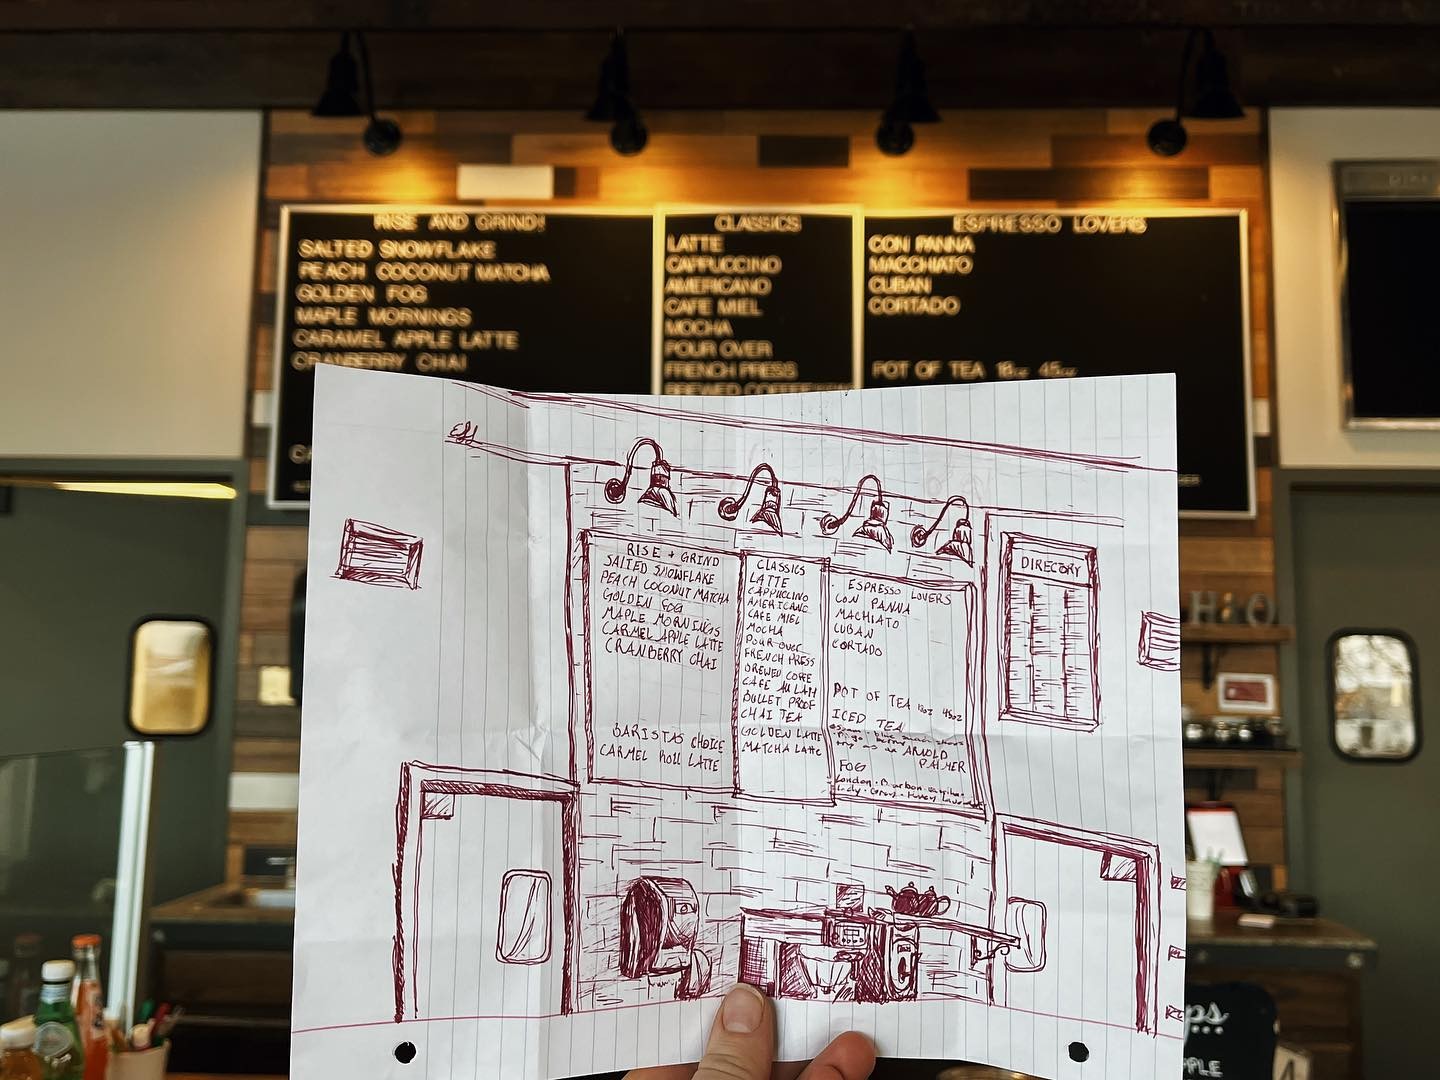 RISE AND GRIND!
SALTED SNOWFLAKE
PEACH COCONUT MATCHA
GOLDEN FOG
MAPLE MORNINGS
CARAMEL APPLE LATTE
CRANBERRY CHAI
CLASSICS
LATTE
CAPPUCCINO
AMERICANO
CAFE MIEL
MOCHA
POUR OVER
FRENCH PRESS
BREWED COFFEE
ESPRESSO LOVERS
CON PANNA
MACCHIATO
CUBAN
CORTADO
POT OF TEA 18oz 45oz
RISE + GRIND
SALTED SNOWFLAKE
PEACH COCONUT MATCHA
GOLDEN FOG
MAPLE MORNINGS
CARMEL APPLE LATTE
CRANBERRY CHAI
BARISTAS CHOICE
CARMEL ROLL LATTE
CLASSICS
LATTE
CAPPUCINO
AMERICANO
CAFE MIEL
MOCHA
POUR OVER
FRENCH PRESS
BREWED COFFE
CAFE AU LAIT
BULLET PROOF
CHAI TEA
GOLDEN LATTE
MATCHA LATTE
ESPRESSO LOVERS
CON PANNA
MACHIATO
CUBAN
CORTADO
POT OF TEA 18oz 45oz
ICED TEA
ARNOLD
PALMER
FOG
London · Bourbon
Lady
DIRECTORY
H2O
PPLE